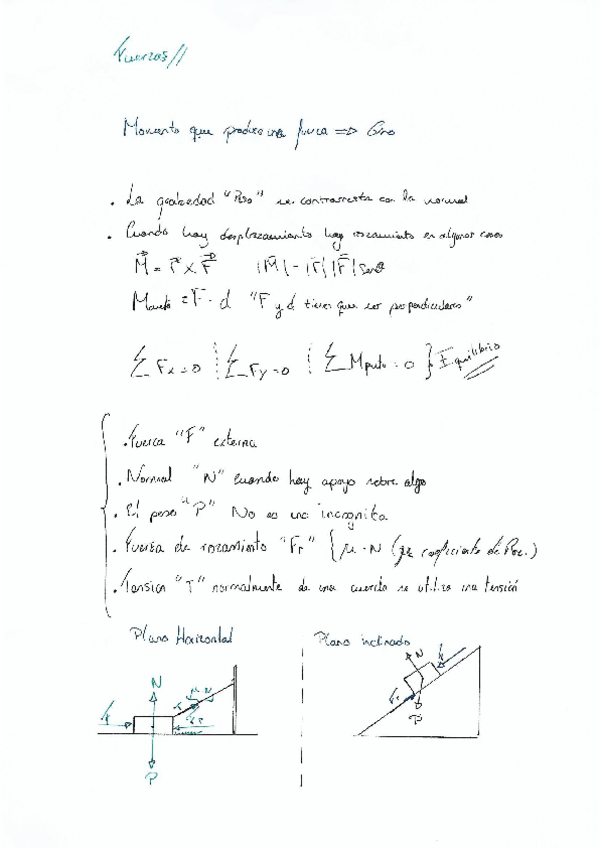 Fuerzas//
Momento que produce una fuerza => Giro
. La grabedad "Peso" se contrarresta con la normal
. Cuando hay desplazamiento hay rozamiento en algunos casos
M = r x F |M| = |r| |F| senθ
Mpunto = F · d "F y d tienen que ser perpendiculares"
Σ Fx = 0 Σ Fy = 0 Σ Mpunto = 0 } Equilibrio
. Fuerza "F" externa
. Normal "N" cuando hay apoyo sobre algo
. El peso "P" No es una incognita
. Fuerza de rozamiento "Fr" { μ · N (μ coeficiente de Roz.)
. Tension "T" normalmente de una cuerda se utiliza una tensión
Plano Horizontal
Plano inclinado
N
N
F
P
Fr
P